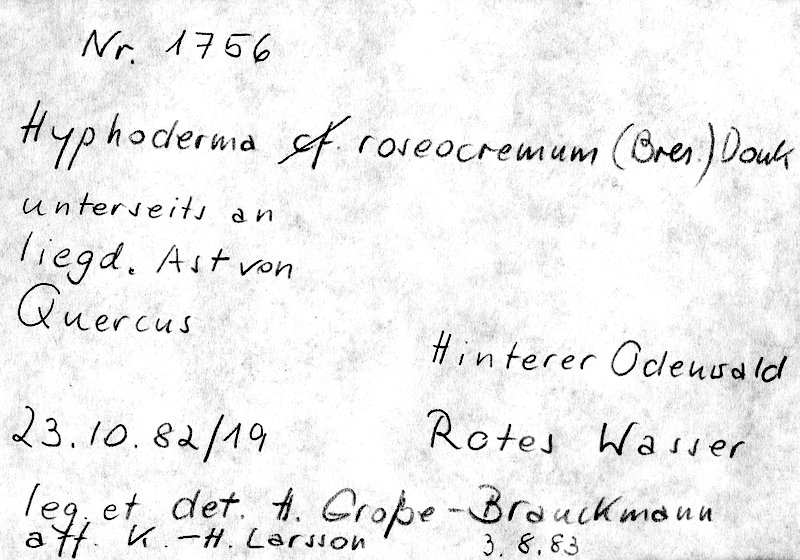 Nr. 1756
Hyphoderma cf. roseocremum (Bres.) Donk
unterseits an
liegd. Ast von
Quercus
Hinterer Odenwald
23.10.82/19
Rotes Wasser
leg. et det. H. Große-Brauckmann
aff. K.-H. Larsson 3.8.83